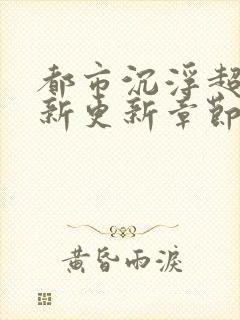 都市沉浮超
新更新章節
黄昏雨淚